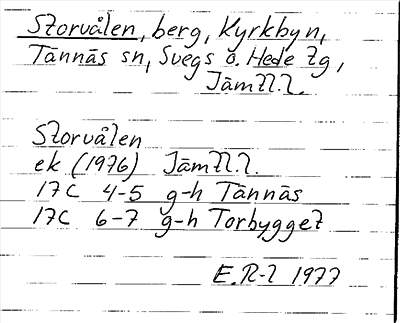 Storvålen, berg, Kyrkbyn,
Tännäs sn, Svegs o. Hede tg,
Jämtl.l.
Storvålen
ek (1976) Jämtl.l.
17C 4-5 g-h Tännäs
17C 6-7 g-h Torbygget
E.R-l 1977